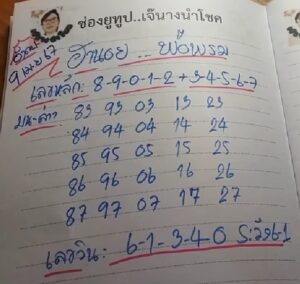 ช่องยูทูป..เจ๊นางนำโชค
9 เมย 67
ฮานอย..พ่อพรม
เลขหลัก: 8-9-0-1-2+3-4-5-6-7
บน-ล่าง 83 93 03 13 23
84 94 04 14 24
85 95 05 15 25
86 96 06 16 26
87 97 07 17 27
เลขวิน: 6-1-3-4-0 ระวัง6-1